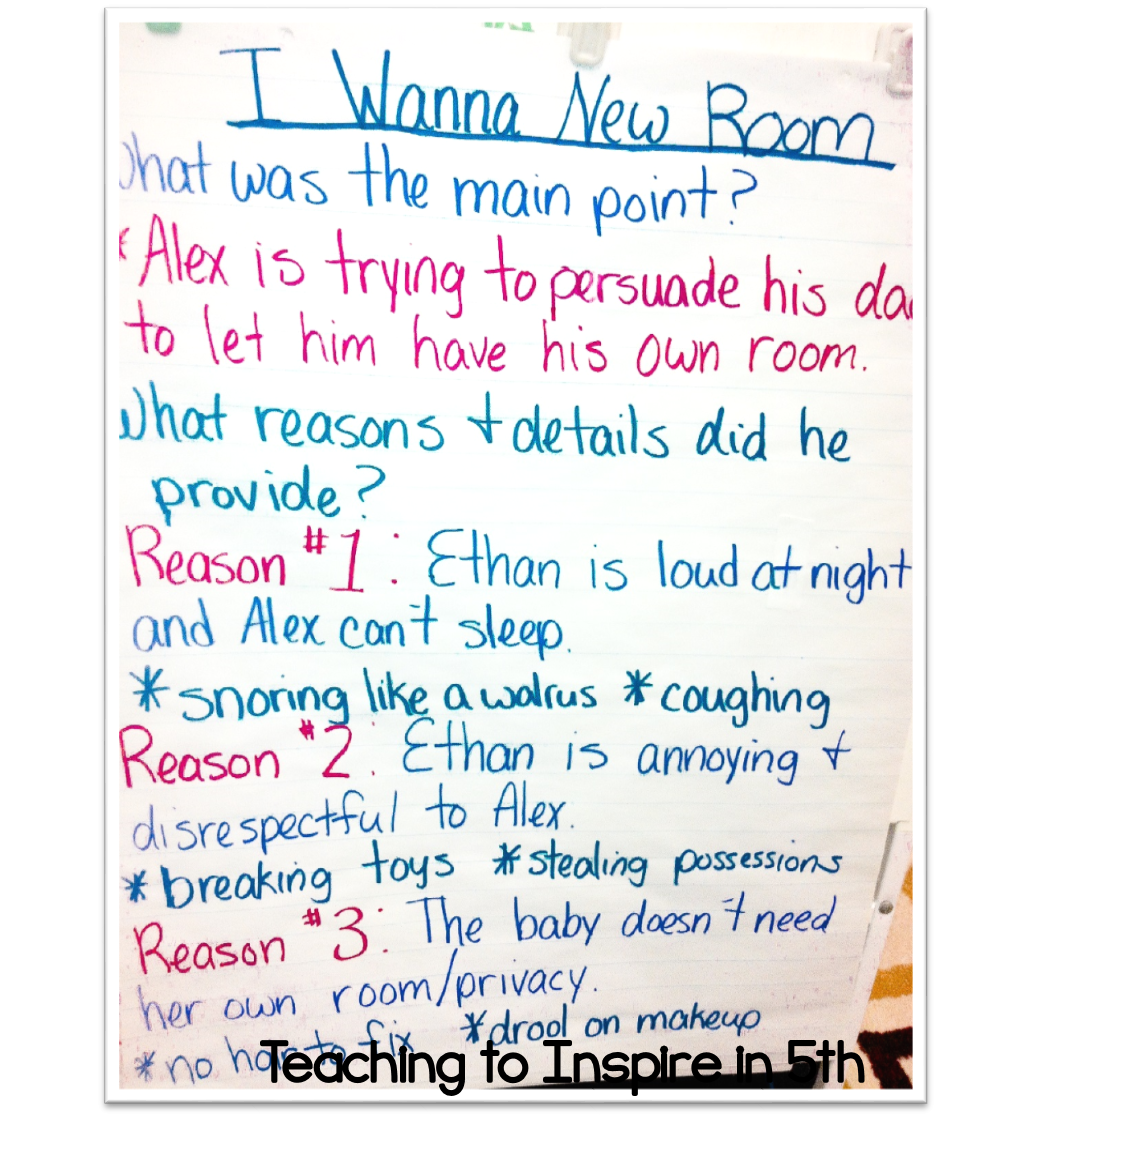 I Wanna New Room
What was the main point?
* Alex is trying to persuade his dad
to let him have his own room.
What reasons + details did he
provide?
Reason #1: Ethan is loud at night
and Alex can't sleep.
* snoring like a walrus * coughing
Reason #2: Ethan is annoying +
disrespectful to Alex.
* breaking toys * stealing possessions
Reason #3: The baby doesn't need
her own room/privacy.
* no hair to fix * drool on makeup
Teaching to Inspire in 5th